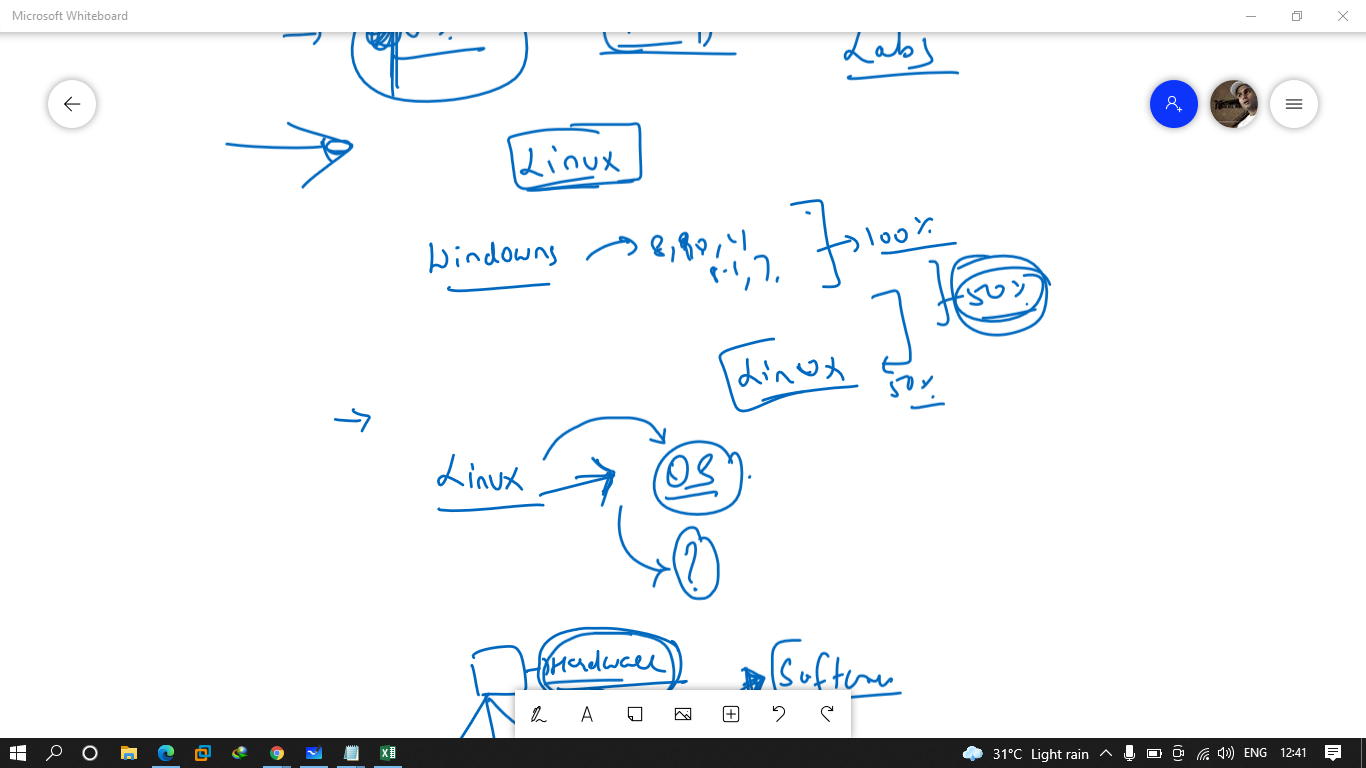 Microsoft Whiteboard
Labs
Linux
Windowns
8, 10, 11
8.1, 7.
100%
50%
Linux
50%
Linux
OS
?
Hardware
Software
A
31°C Light rain
ENG
12:41